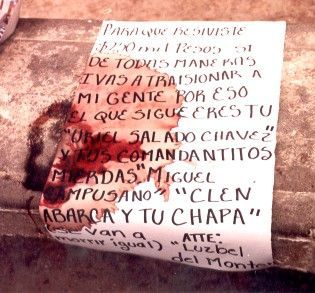 PARA QUE RESIVISTE
$250 mil PESOS SI
DE TODAS MANERAS
IVAS A TRAISIONAR A
MI GENTE POR ESO
EL QUE SIGUE ERES TU
"URIEL SALADO CHAVEZ"
Y TUS COMANDANTITOS
MIERDAS "MIGUEL
CAMPUSANO" "CLEN
ABARCA Y TU CHAPA"
(se van a
morrir igual) ATTE:
"Luzbel
del Monte"